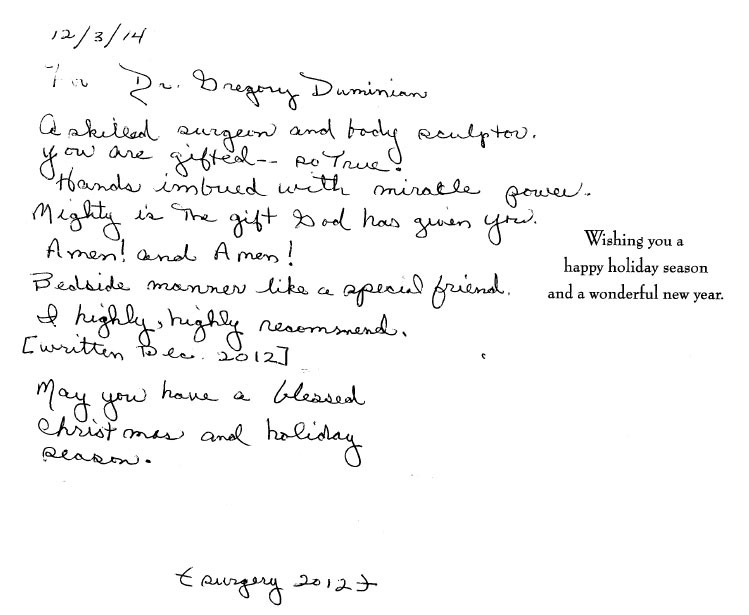 12/3/14
For Dr. Gregory Duminian
A skilled surgeon and body sculptor.
you are gifted-- so True!
Hands imbued with miracle power.
Mighty is The gift God has given you.
Amen! and Amen!
Bedside manner like a special friend.
I highly, highly recommend.
[written Dec. 2012]
May you have a blessed
Christmas and holiday
season.
{surgery 2012}
Wishing you a
happy holiday season
and a wonderful new year.